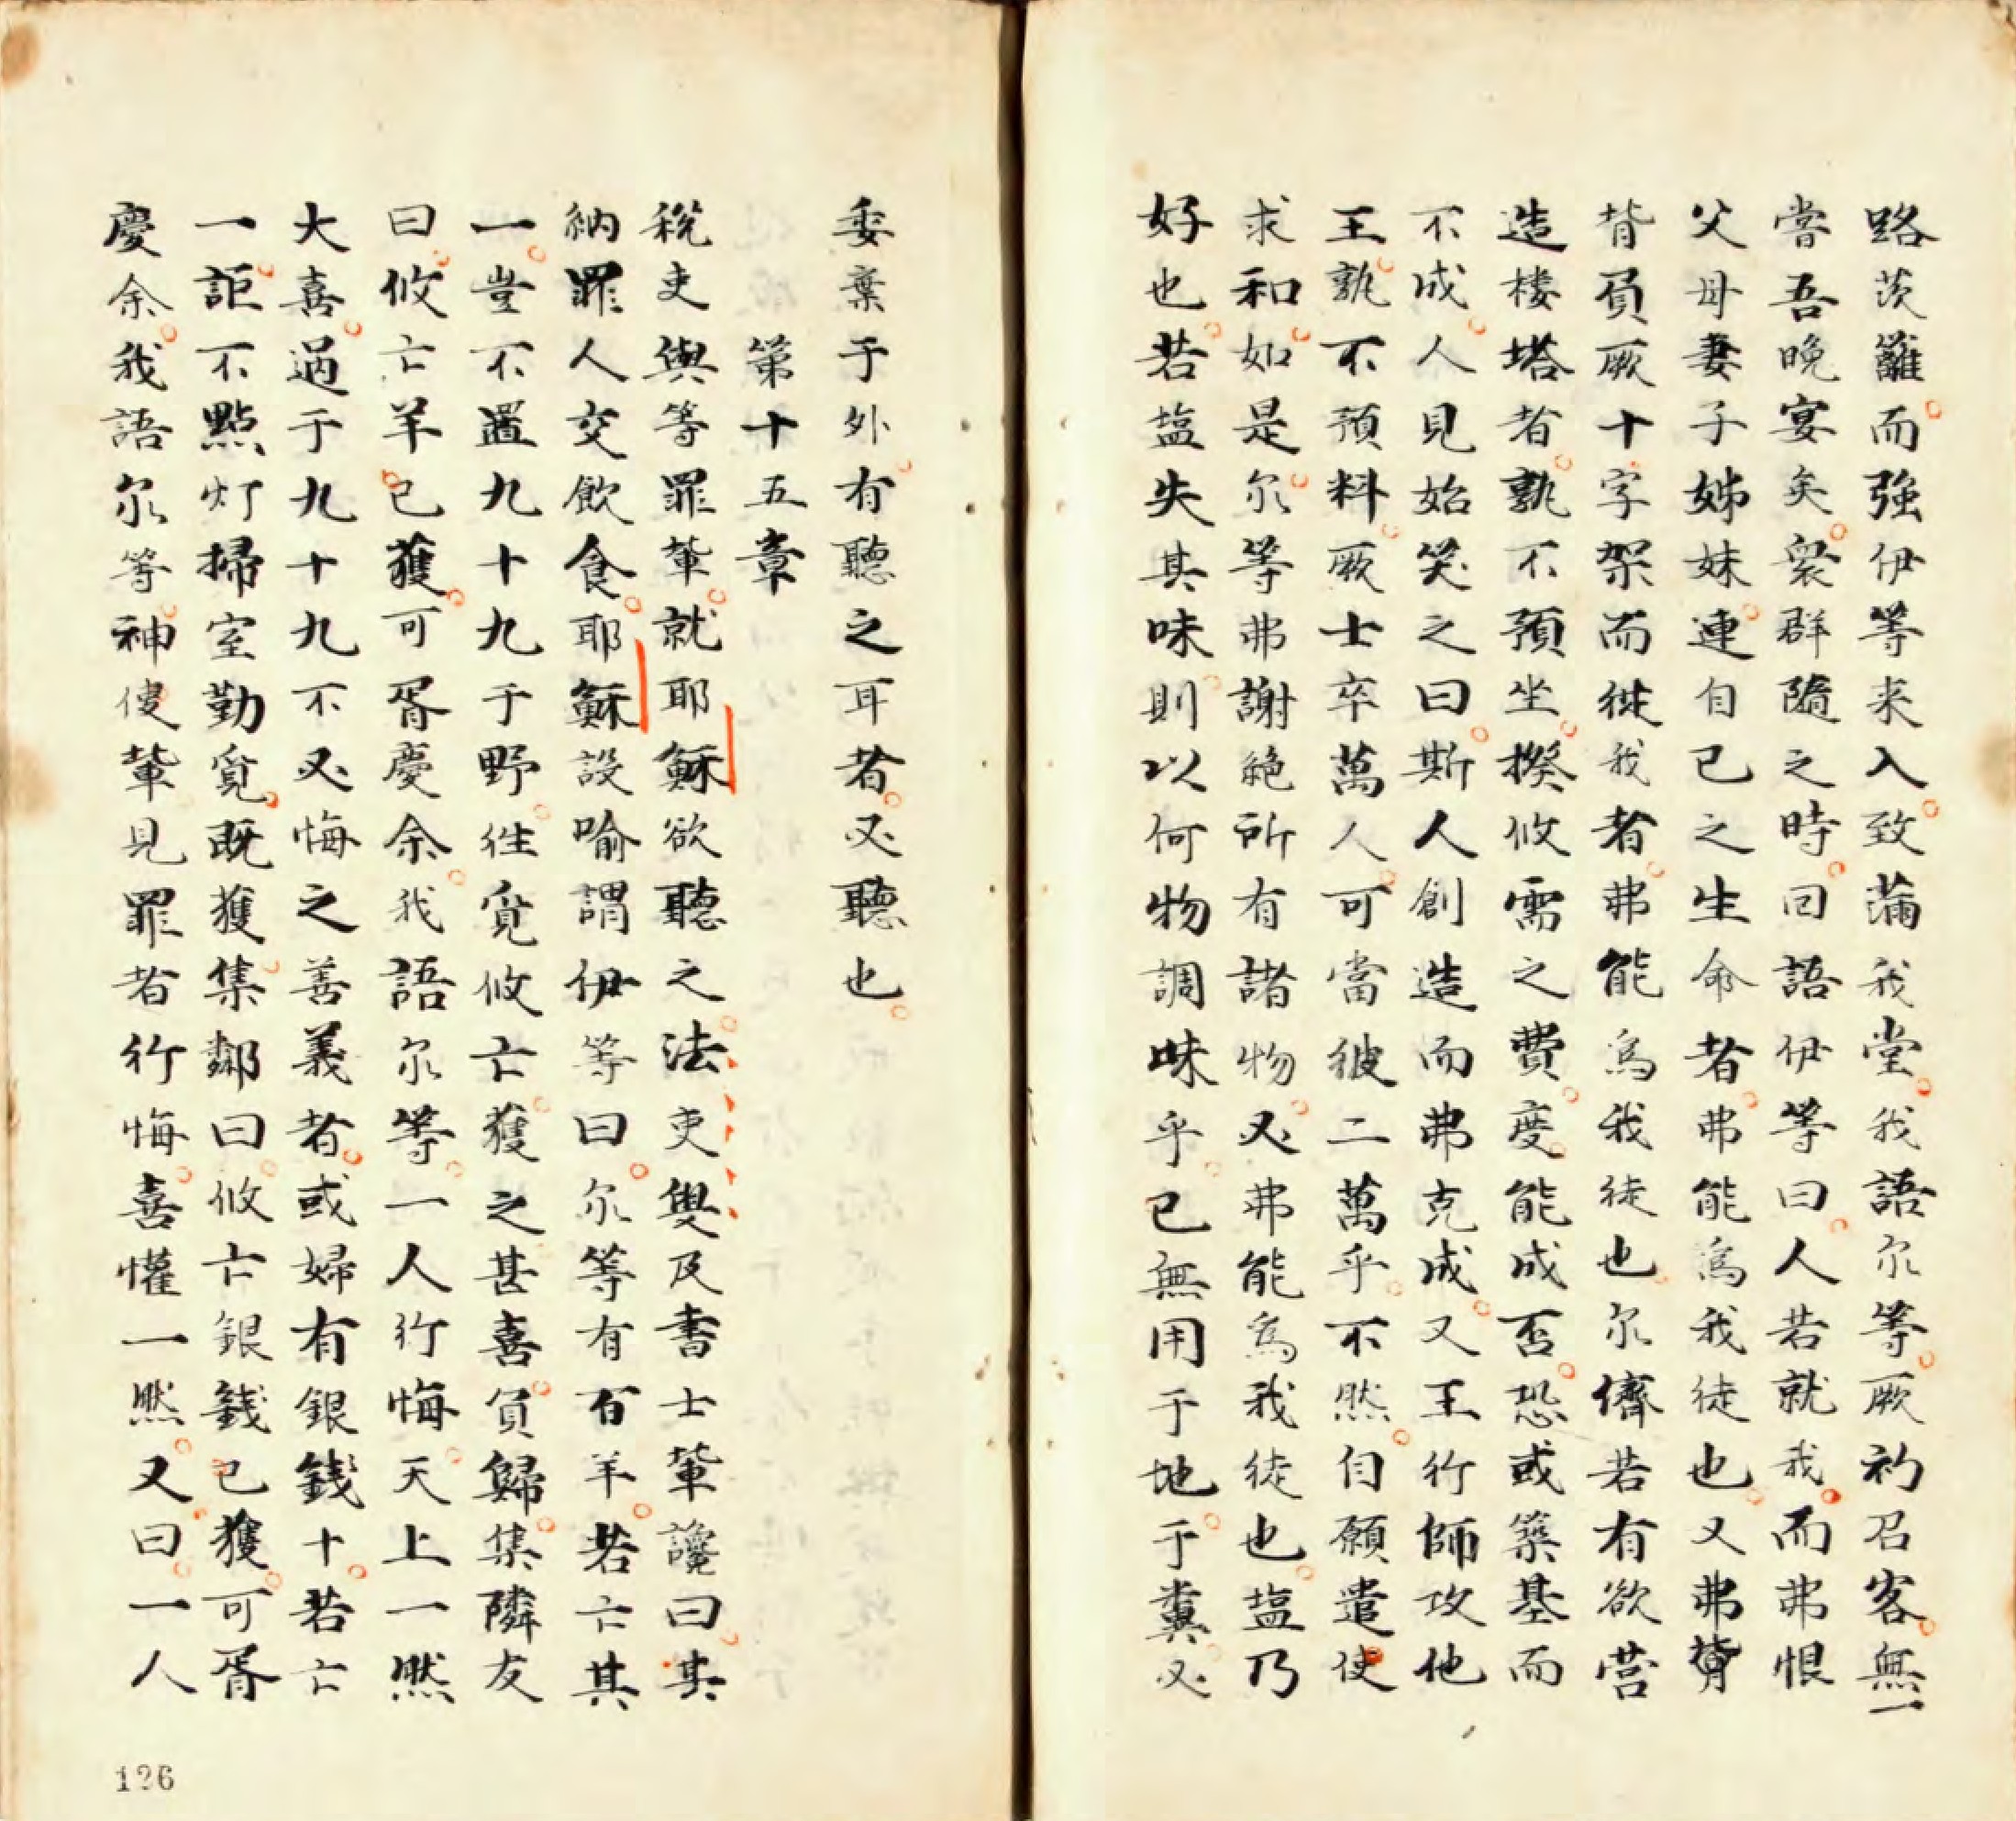 路茨籬而強伊等来入致𦶜我堂我語尔等厥初召客無一
嘗吾晚宴矣衆群隨之時回語伊等曰人若就我而弗恨
父母妻子姊妹連自己之生命者弗能為我徒也又弗背
背負厥十字架而従我者弗能為我徒也尔儕若有欲営
造楼塔者孰不預坐揆攸需之費度能成否恐或築基而
不成人見始笑之曰斯人創造而弗克成又王行師攻他
王孰不預料厥士卒萬人可當彼二萬乎不然自願遣使
求和如是尔等弗謝絶所有諸物必弗能為我徒也塩乃
好也若塩失其味則以何物調味乎已無用于地于糞必
委棄于外有聽之耳者必聽也
第十五章
税吏與等罪軰就耶穌欲聽之法吏㒷及書士軰讒曰其
納罪人交飲食耶穌設喻謂伊等曰尔等有百羊若亡其
一豈不置九十九于野徃覓攸亡獲之甚喜負歸集隣友
曰攸亡羊已獲可胥慶余我語尔等一人行悔天上一㸐
大喜過于九十九不必悔之善義者或婦有銀銭十若亡
一詎不點灯掃室勤覓既獲集鄰曰攸亡銀錢已獲可胥
慶余我語尔等神使軰見罪者行悔喜懽一㸐又曰一人
126